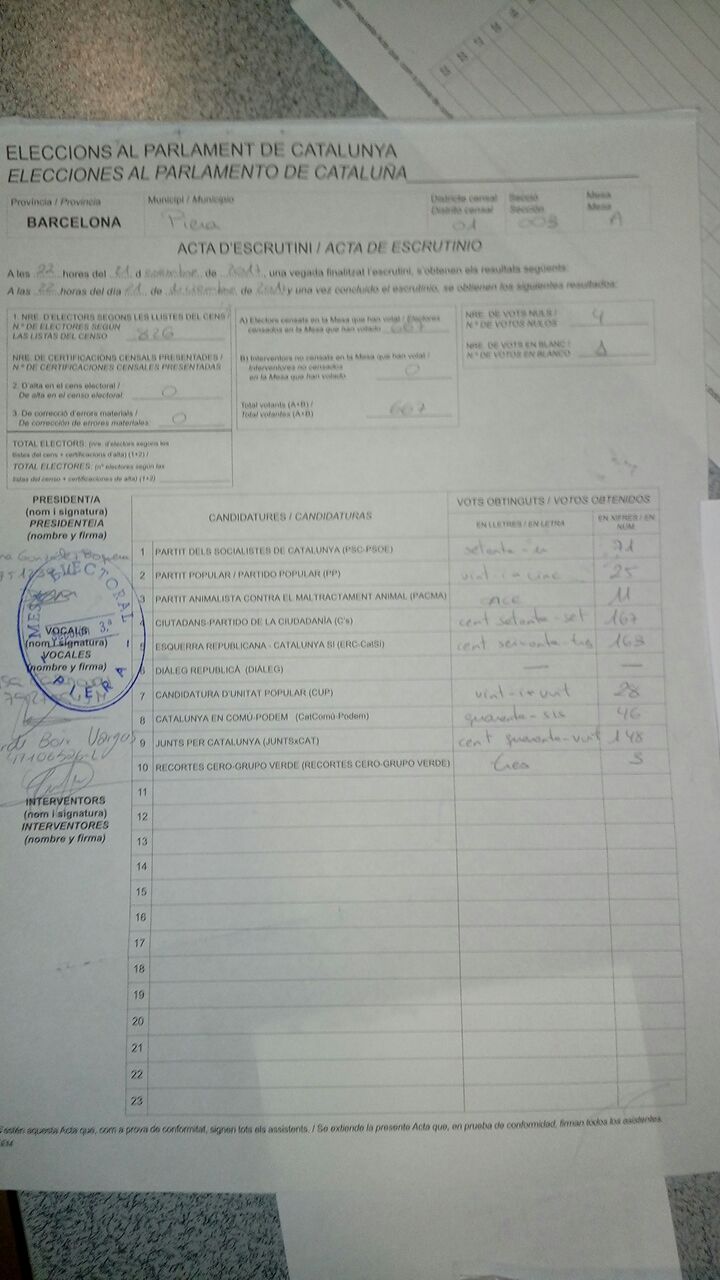 ELECCIONS AL PARLAMENT DE CATALUNYA
ELECCIONES AL PARLAMENTO DE CATALUÑA
Província / Provincia
Municipi / Municipio
Districte censal
Distrito censal
Secció
Sección
Mesa
Mesa
BARCELONA
Piera
01
003
A
ACTA D'ESCRUTINI / ACTA DE ESCRUTINIO
A les 22 hores del 21 d de 2017, una vegada finalitzat l'escrutini, s'obtenen els resultats següents:
A las 22 horas del día 21 de diciembre de y una vez concluido el escrutinio, se obtienen los siguientes resultados:
1. NRE. D'ELECTORS SEGONS LES LLISTES DEL CENS /
N.º DE ELECTORES SEGÚN
LAS LISTAS DEL CENSO 826
NRE. DE CERTIFICACIONS CENSALS PRESENTADES /
N.º DE CERTIFICACIONES CENSALES PRESENTADAS
2. D'alta en el cens electoral /
De alta en el censo electoral: 0
3. De correcció d'errors materials /
De corrección de errores materiales: 0
TOTAL ELECTORS: (nre. d'electors segons les
llistes del cens + certificacions d'alta) (1+2) /
TOTAL ELECTORES: (nº electores según las
listas del censo + certificaciones de alta) (1+2)
A) Electors censats en la Mesa que han votat / Electores
censados en la Mesa que han votado 667
B) Interventors no censats en la Mesa que han votat /
Interventores no censados
en la Mesa que han votado 0
Total votants (A+B) /
Total votantes (A+B) 667
NRE. DE VOTS NULS /
N.º DE VOTOS NULOS 4
NRE. DE VOTS EN BLANC /
N.º DE VOTOS EN BLANCO 1
PRESIDENT/A
(nom i signatura)
PRESIDENTE/A
(nombre y firma)
MESA ELECTORAL
SECCIÓN 3.ª
PIERA
VOCALS
(nom i signatura)
VOCALES
(nombre y firma)
Boix Vargas
INTERVENTORS
(nom i signatura)
INTERVENTORES
(nombre y firma)
CANDIDATURES / CANDIDATURAS
VOTS OBTINGUTS / VOTOS OBTENIDOS
EN LLETRES / EN LETRA
EN XIFRES / EN NÚM.
1 PARTIT DELS SOCIALISTES DE CATALUNYA (PSC-PSOE) setanta-u 71
2 PARTIT POPULAR / PARTIDO POPULAR (PP) vint-i-cinc 25
3 PARTIT ANIMALISTA CONTRA EL MALTRACTAMENT ANIMAL (PACMA) once 11
4 CIUTADANS-PARTIDO DE LA CIUDADANÍA (C's) cent setanta-set 167
5 ESQUERRA REPUBLICANA - CATALUNYA SÍ (ERC-CatSí) cent seixanta-tres 163
6 DIÀLEG REPUBLICÀ (DIÀLEG) — —
7 CANDIDATURA D'UNITAT POPULAR (CUP) vint-i-vuit 28
8 CATALUNYA EN COMÚ-PODEM (CatComú-Podem) quaranta-sis 46
9 JUNTS PER CATALUNYA (JUNTSxCAT) cent quaranta-vuit 148
10 RECORTES CERO-GRUPO VERDE (RECORTES CERO-GRUPO VERDE) tres 3
11
12
13
14
15
16
17
18
19
20
21
22
23
aquesta Acta que, com a prova de conformitat, signen tots els assistents. / Se extiende la presente Acta que, en prueba de conformidad, firman todos los asistentes.